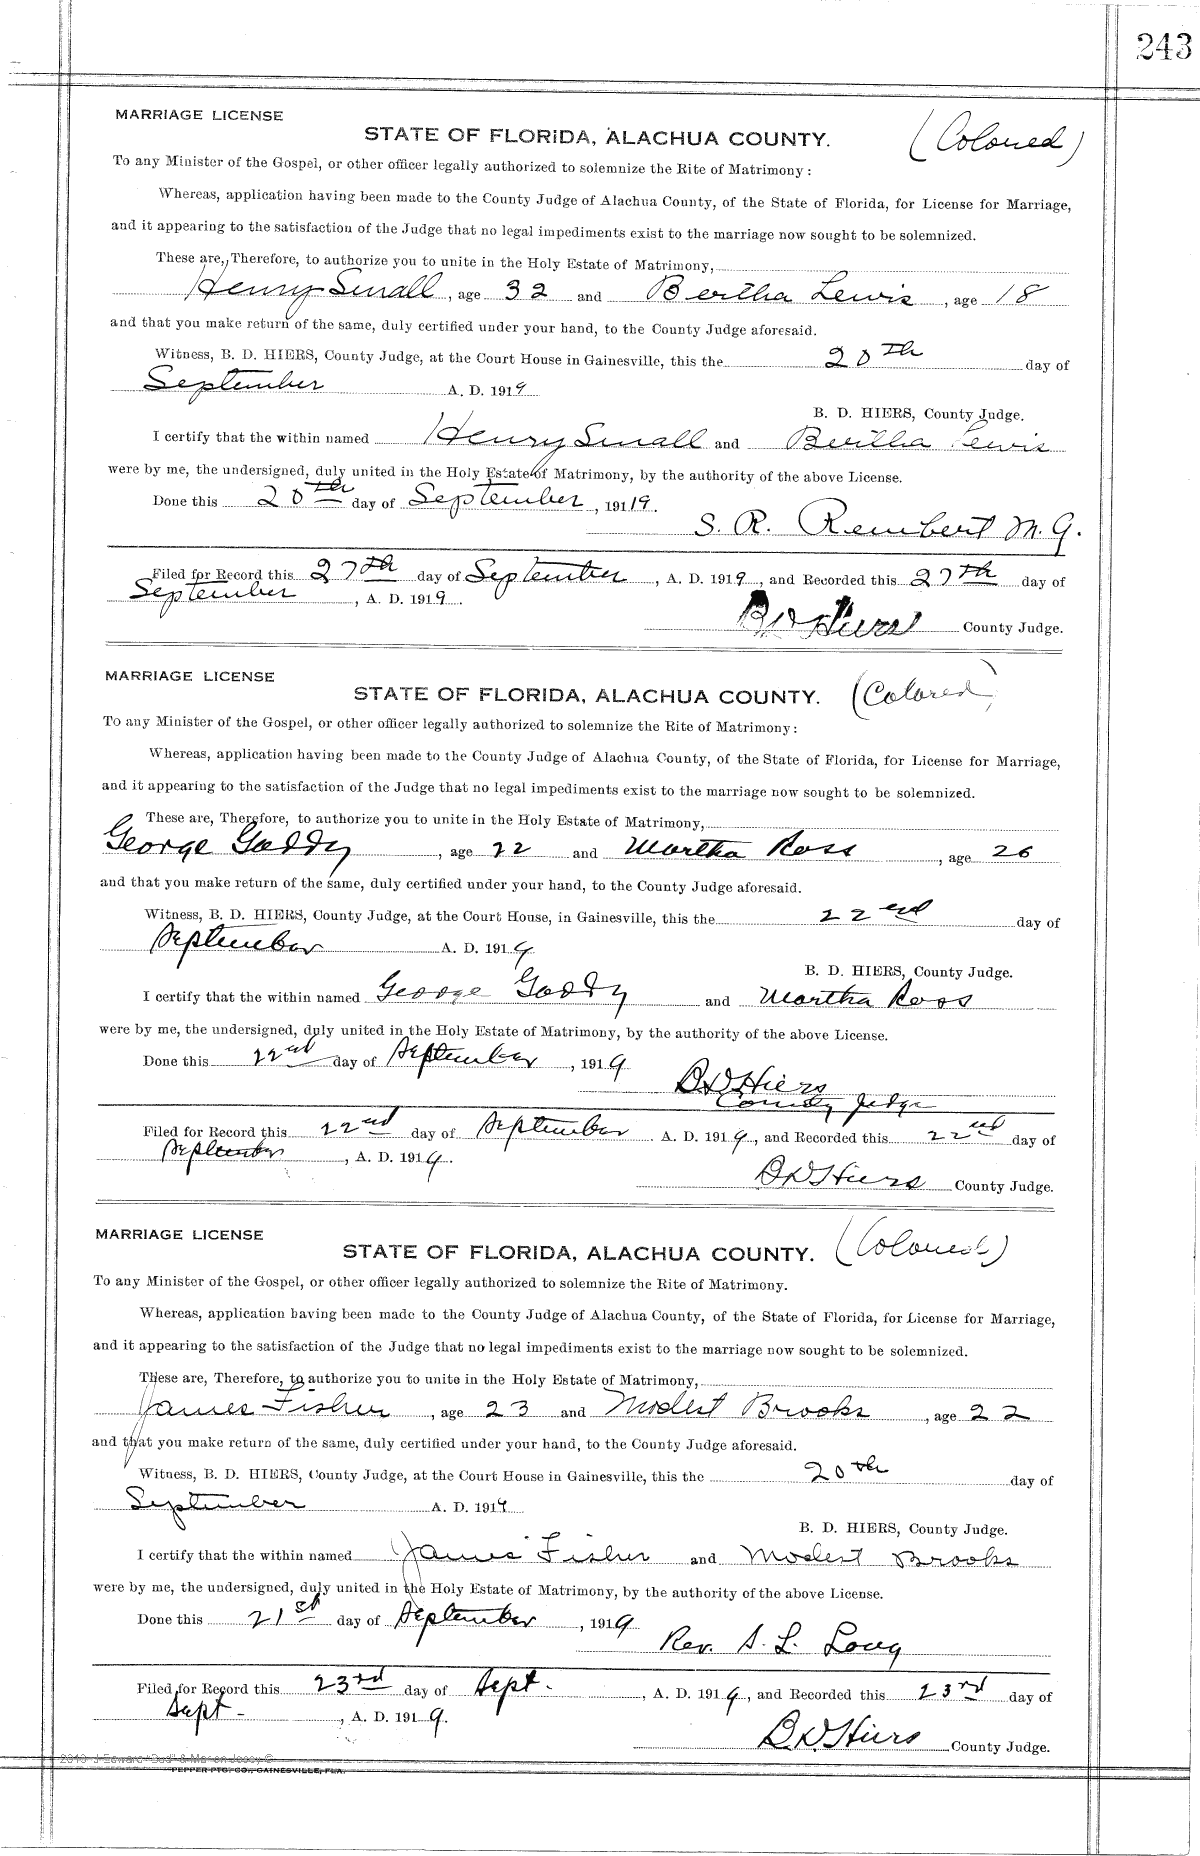 243
MARRIAGE LICENSE
STATE OF FLORIDA, ALACHUA COUNTY. (Colored)
To any Minister of the Gospel, or other officer legally authorized to solemnize the Rite of Matrimony:
Whereas, application having been made to the County Judge of Alachua County, of the State of Florida, for License for Marriage,
and it appearing to the satisfaction of the Judge that no legal impediments exist to the marriage now sought to be solemnized.
These are, Therefore, to authorize you to unite in the Holy Estate of Matrimony,
Henry Small, age 32 and Bertha Lewis, age 18
and that you make return of the same, duly certified under your hand, to the County Judge aforesaid.
Witness, B. D. HIERS, County Judge, at the Court House in Gainesville, this the 20th day of
September A. D. 1919
B. D. HIERS, County Judge.
I certify that the within named Henry Small and Bertha Lewis
were by me, the undersigned, duly united in the Holy Estate of Matrimony, by the authority of the above License.
Done this 20th day of September, 19119.
S. R. Rembert M.G.
Filed for Record this 27th day of September, A. D. 1919, and Recorded this 27th day of
September, A. D. 1919.
B D Hiers County Judge.
MARRIAGE LICENSE
STATE OF FLORIDA, ALACHUA COUNTY. (Colored)
To any Minister of the Gospel, or other officer legally authorized to solemnize the Rite of Matrimony:
Whereas, application having been made to the County Judge of Alachua County, of the State of Florida, for License for Marriage,
and it appearing to the satisfaction of the Judge that no legal impediments exist to the marriage now sought to be solemnized.
These are, Therefore, to authorize you to unite in the Holy Estate of Matrimony,
George Gaddy, age 22 and Martha Ross, age 26
and that you make return of the same, duly certified under your hand, to the County Judge aforesaid.
Witness, B. D. HIERS, County Judge, at the Court House, in Gainesville, this the 22nd day of
September A. D. 1919
B. D. HIERS, County Judge.
I certify that the within named George Gaddy and Martha Ross
were by me, the undersigned, duly united in the Holy Estate of Matrimony, by the authority of the above License.
Done this 22nd day of September, 1919
B D Hiers
County Judge
Filed for Record this 22nd day of September. A. D. 1919, and Recorded this 22nd day of
September, A. D. 1919.
B D Hiers County Judge.
MARRIAGE LICENSE
STATE OF FLORIDA, ALACHUA COUNTY. (Colored)
To any Minister of the Gospel, or other officer legally authorized to solemnize the Rite of Matrimony.
Whereas, application having been made to the County Judge of Alachua County, of the State of Florida, for License for Marriage,
and it appearing to the satisfaction of the Judge that no legal impediments exist to the marriage now sought to be solemnized.
These are, Therefore, to authorize you to unite in the Holy Estate of Matrimony,
James Fisher, age 23 and Modest Brooks, age 22
and that you make return of the same, duly certified under your hand, to the County Judge aforesaid.
Witness, B. D. HIERS, County Judge, at the Court House in Gainesville, this the 20th day of
September A. D. 1919
B. D. HIERS, County Judge.
I certify that the within named James Fisher and Modest Brooks
were by me, the undersigned, duly united in the Holy Estate of Matrimony, by the authority of the above License.
Done this 21st day of September, 1919
Rev. S. L. Long
Filed for Record this 23rd day of Sept., A. D. 1919, and Recorded this 23rd day of
Sept-, A. D. 1919.
B D Hiers County Judge.
PEPPER PTG. CO., GAINESVILLE, FLA.